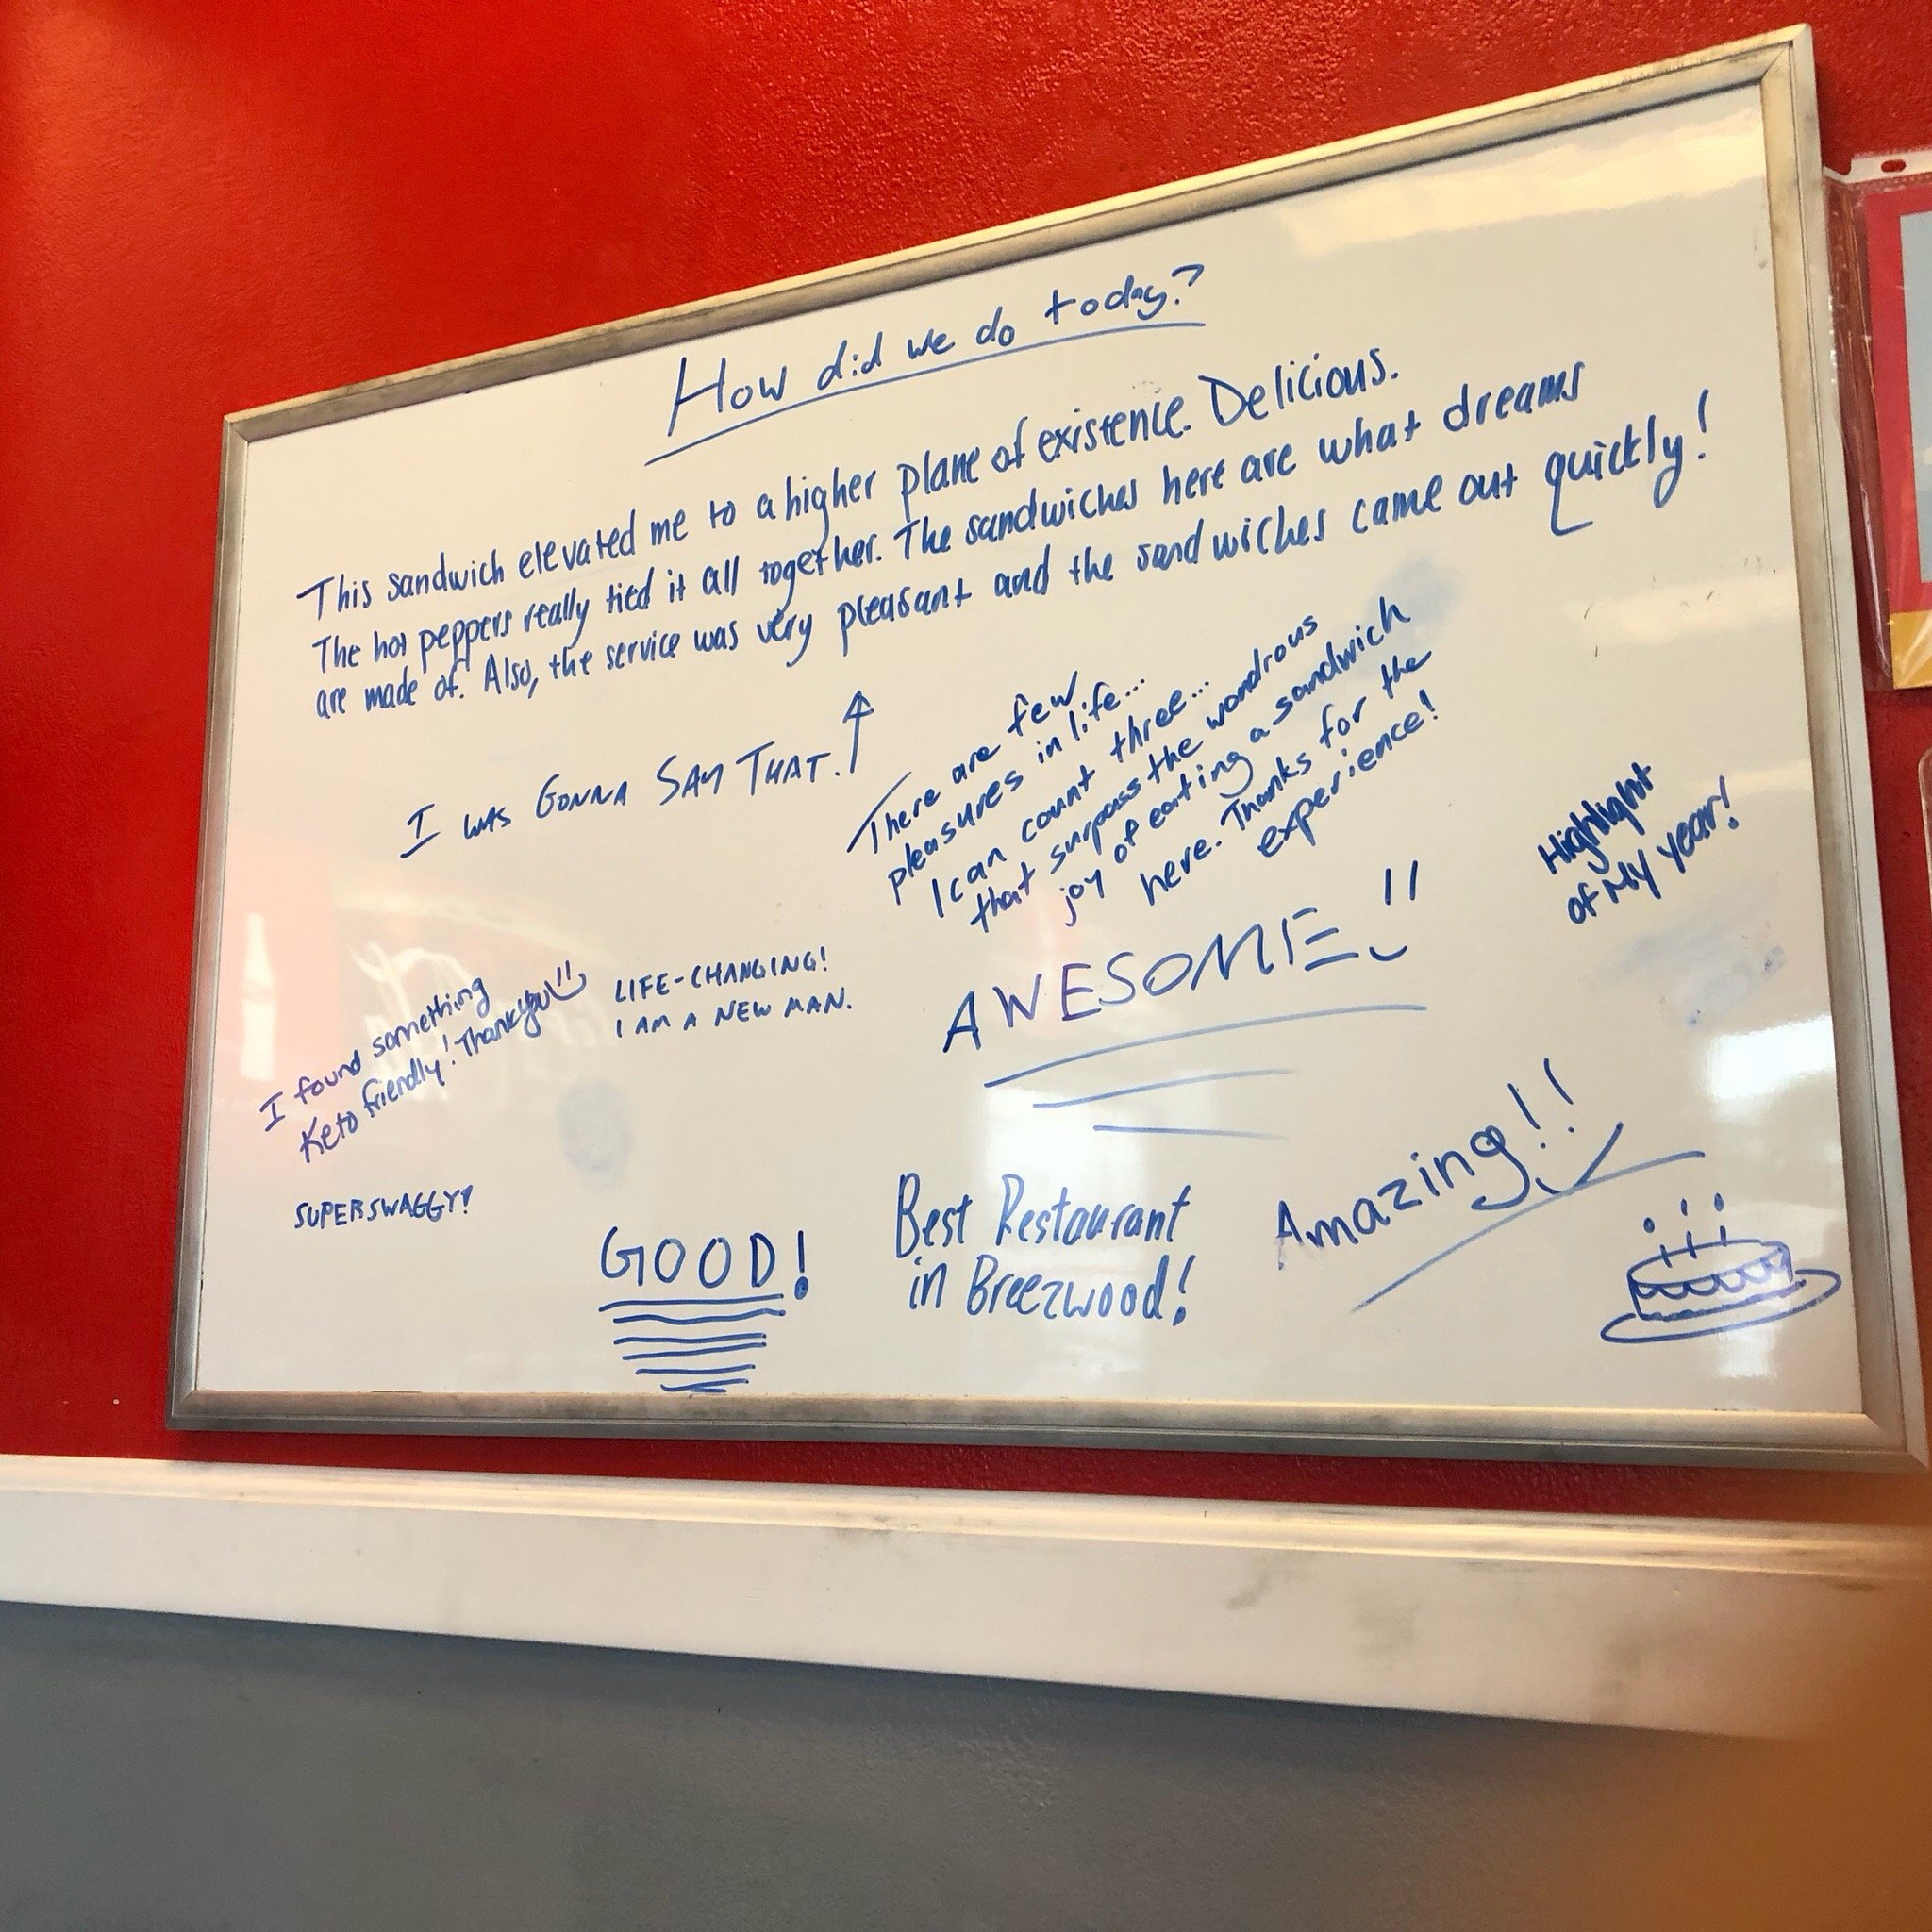 How did we do today?
This sandwich elevated me to a higher plane of existence. Delicious.
The hot peppers really tied it all together. The sandwiches here are what dreams
are made of. Also, the service was very pleasant and the sandwiches came out quickly!
I WAS GONNA SAY THAT.
There are few
pleasures in life...
I can count three...
that surpass the wondrous
joy of eating a sandwich
here. Thanks for the
experience!
Highlight
of My year!
I found something
Keto friendly! Thank you
LIFE-CHANGING!
I AM A NEW MAN.
AWESOME
SUPERSWAGGY!
GOOD!
Best Restaurant
in Breezwood!
Amazing!!